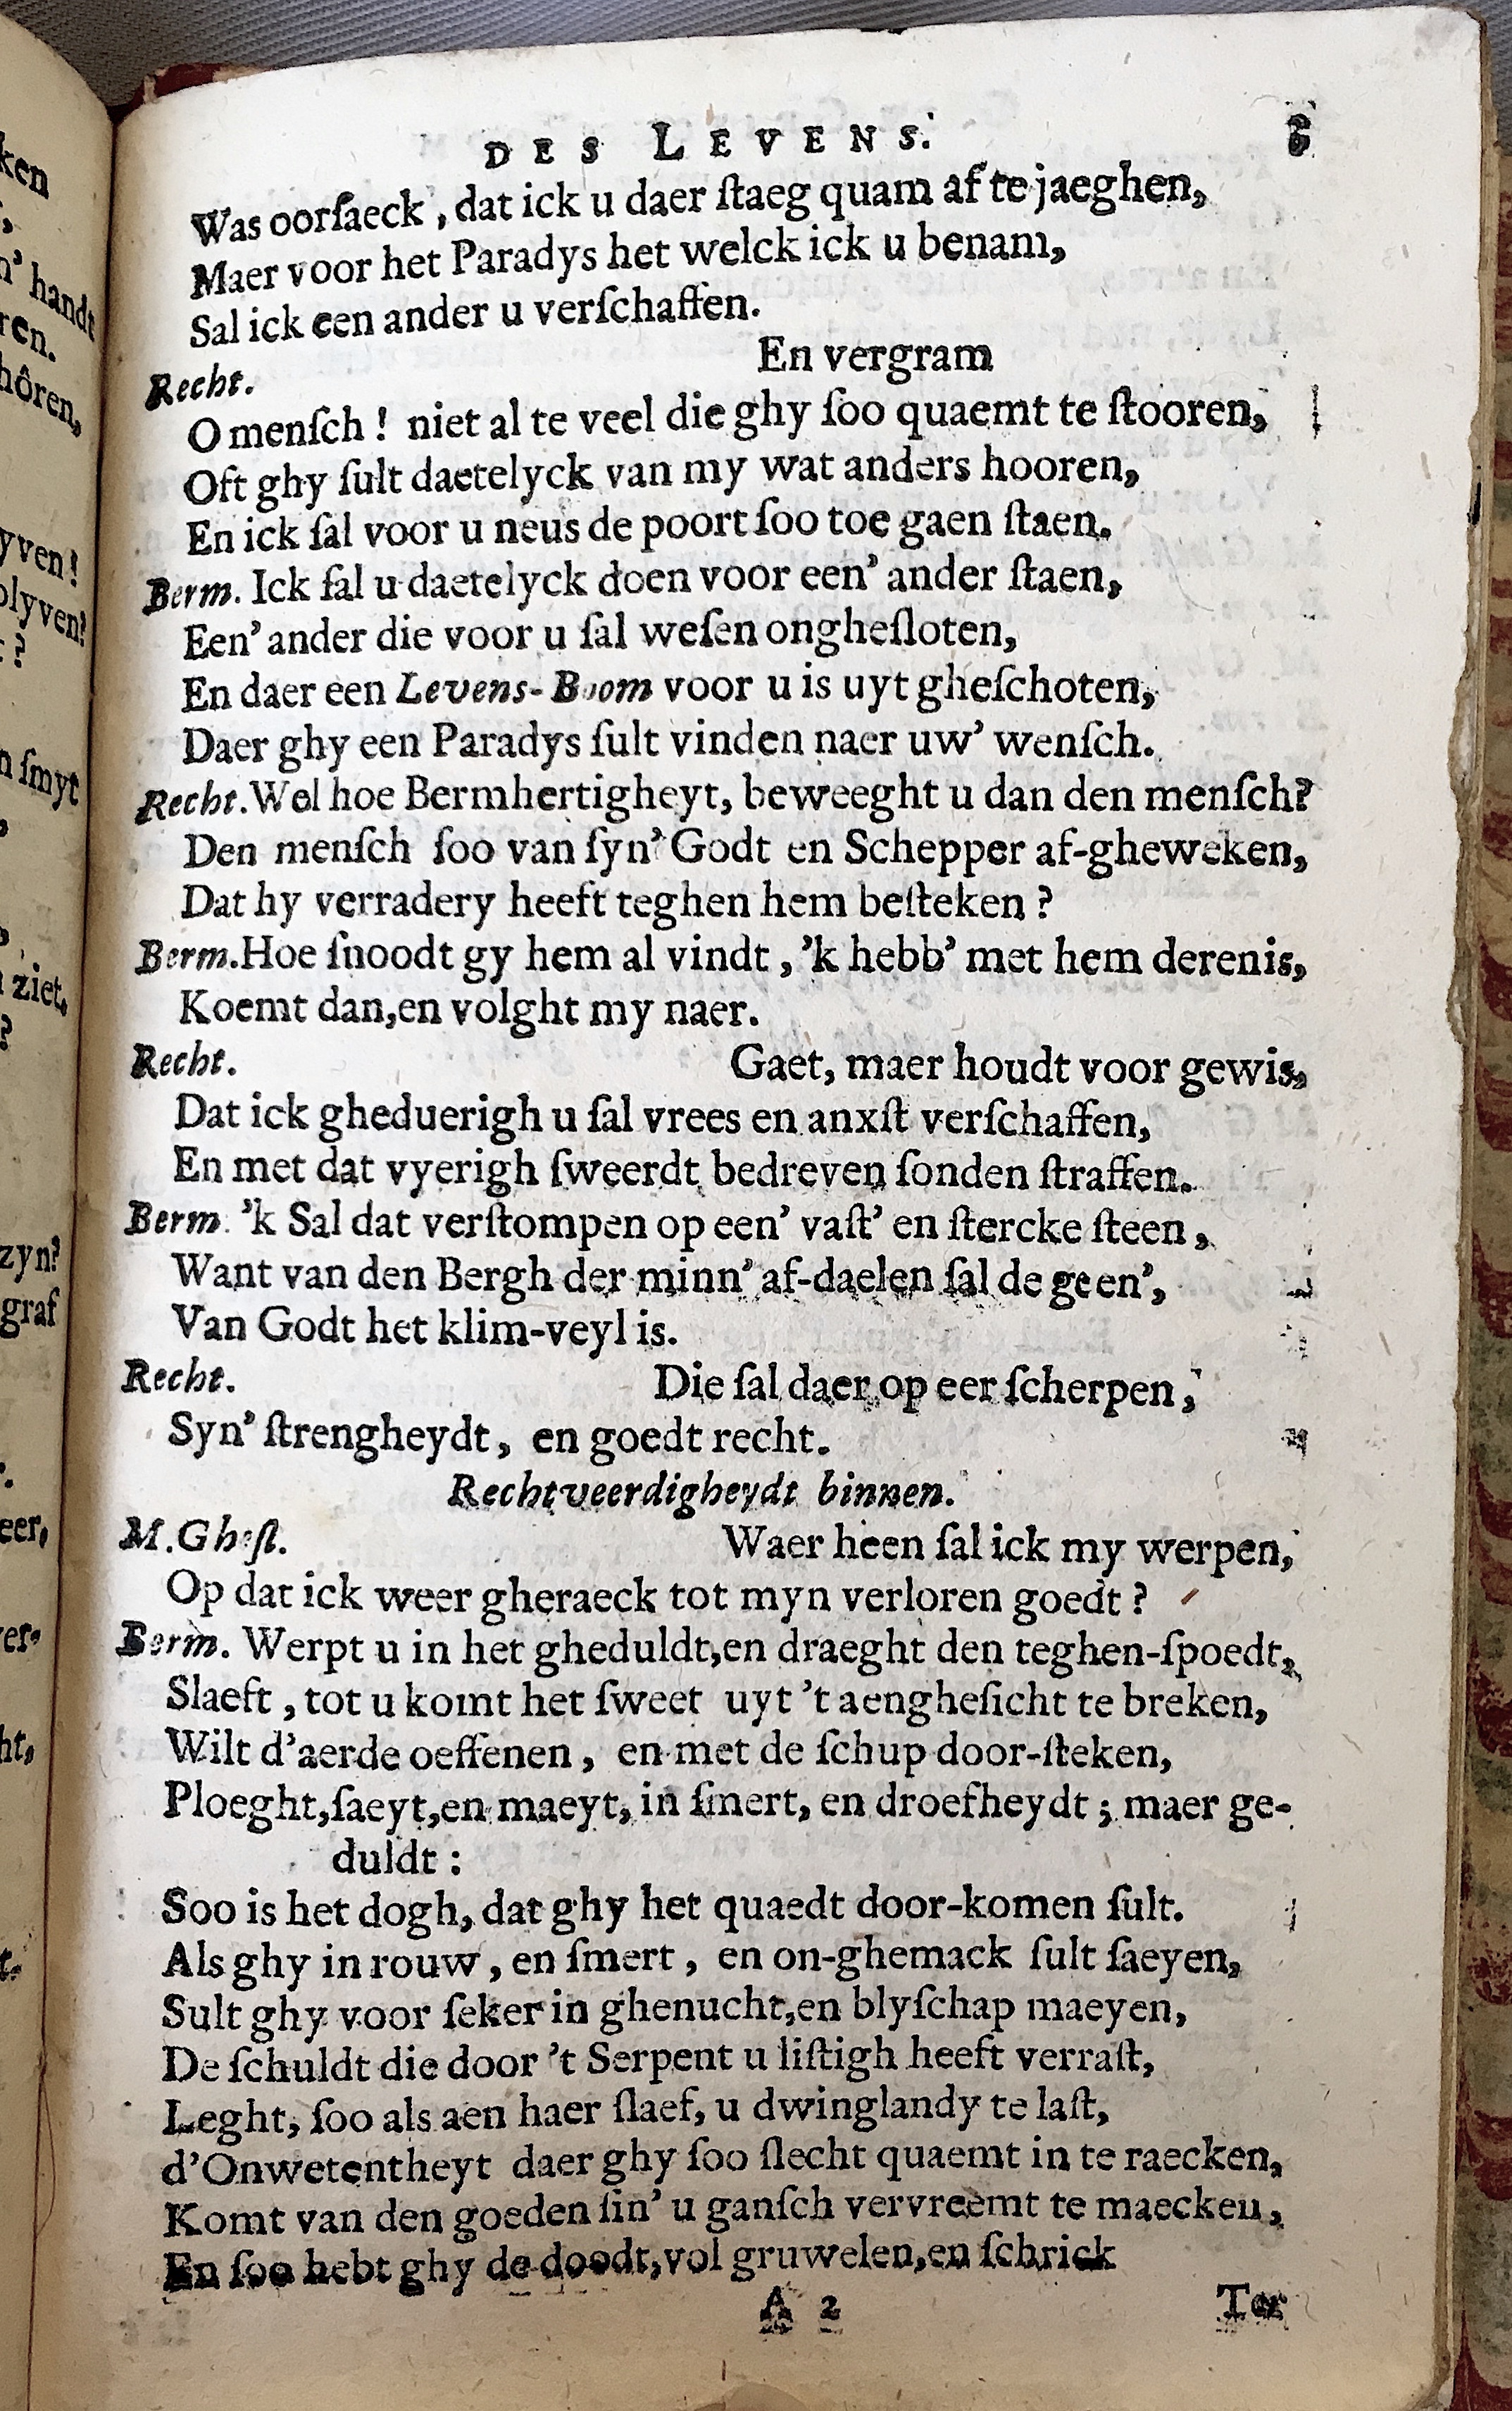 ken
n' handt
ren.
hôren,
yven!
blyven!
: ?
n ſmyt
ziet.
?
zyn?
graf
eer,
ver-
ht,
t.
DES LEVENS.
Was oorſaeck, dat ick u daer ſtaeg quam af te jaeghen,
Maer voor het Paradys het welck ick u benam,
Sal ick een ander u verſchaffen.
Recht. En vergram
O menſch! niet al te veel die ghy ſoo quaemt te ſtooren,
Oft ghy ſult daetelyck van my wat anders hooren,
En ick ſal voor u neus de poort ſoo toe gaen ſtaen.
Berm. Ick ſal u daetelyck doen voor een' ander ſtaen,
Een' ander die voor u ſal weſen onghesloten,
En daer een Levens-Boom voor u is uyt gheſchoten,
Daer ghy een Paradys ſult vinden naer uw' wenſch.
Recht. Wel hoe Bermhertigheyt, beweeght u dan den menſch?
Den menſch ſoo van ſyn' Godt en Schepper af-gheweken,
Dat hy verradery heeft teghen hem beſteken?
Berm. Hoe ſnoodt gy hem al vindt, 'k hebb' met hem derenis,
Koemt dan, en volght my naer.
Recht. Gaet, maer houdt voor gewis,
Dat ick gheduerigh u ſal vrees en anxſt verſchaffen,
En met dat vyerigh ſweerdt bedreven ſonden ſtraffen.
Berm. 'k Sal dat verſtompen op een' vaſt' en ſtercke ſteen,
Want van den Bergh der minn' af-daelen ſal de geen',
Van Godt het klim-veyl is.
Recht. Die ſal daer op eer ſcherpen,
Syn' ſtrengheydt, en goedt recht.
Rechtveerdigheydt binnen.
M. Gheſl. Waer heen ſal ick my werpen,
Op dat ick weer gheraeck tot myn verloren goedt?
Berm. Werpt u in het gheduldt, en draeght den teghen-ſpoedt,
Slaeft, tot u komt het ſweet uyt 't aengheſicht te breken,
Wilt d'aerde oeffenen, en met de ſchup door-ſteken,
Ploeght, ſaeyt, en maeyt, in ſmert, en droefheydt; maer ge-
duldt:
Soo is het dogh, dat ghy het quaedt door-komen ſult.
Als ghy in rouw, en ſmert, en on-ghemack ſult ſaeyen,
Sult ghy voor ſeker in ghenucht, en blyſchap maeyen,
De ſchuldt die door 't Serpent u liſtigh heeft verraſt,
Leght, ſoo als aen haer ſlaef, u dwinglandy te laſt,
d'Onwetentheyt daer ghy ſoo ſlecht quaemt in te raecken,
Komt van den goeden ſin' u ganſch vervreemt te maecken,
En ſoo hebt ghy de doodt, vol gruwelen, en ſchrick
A 2